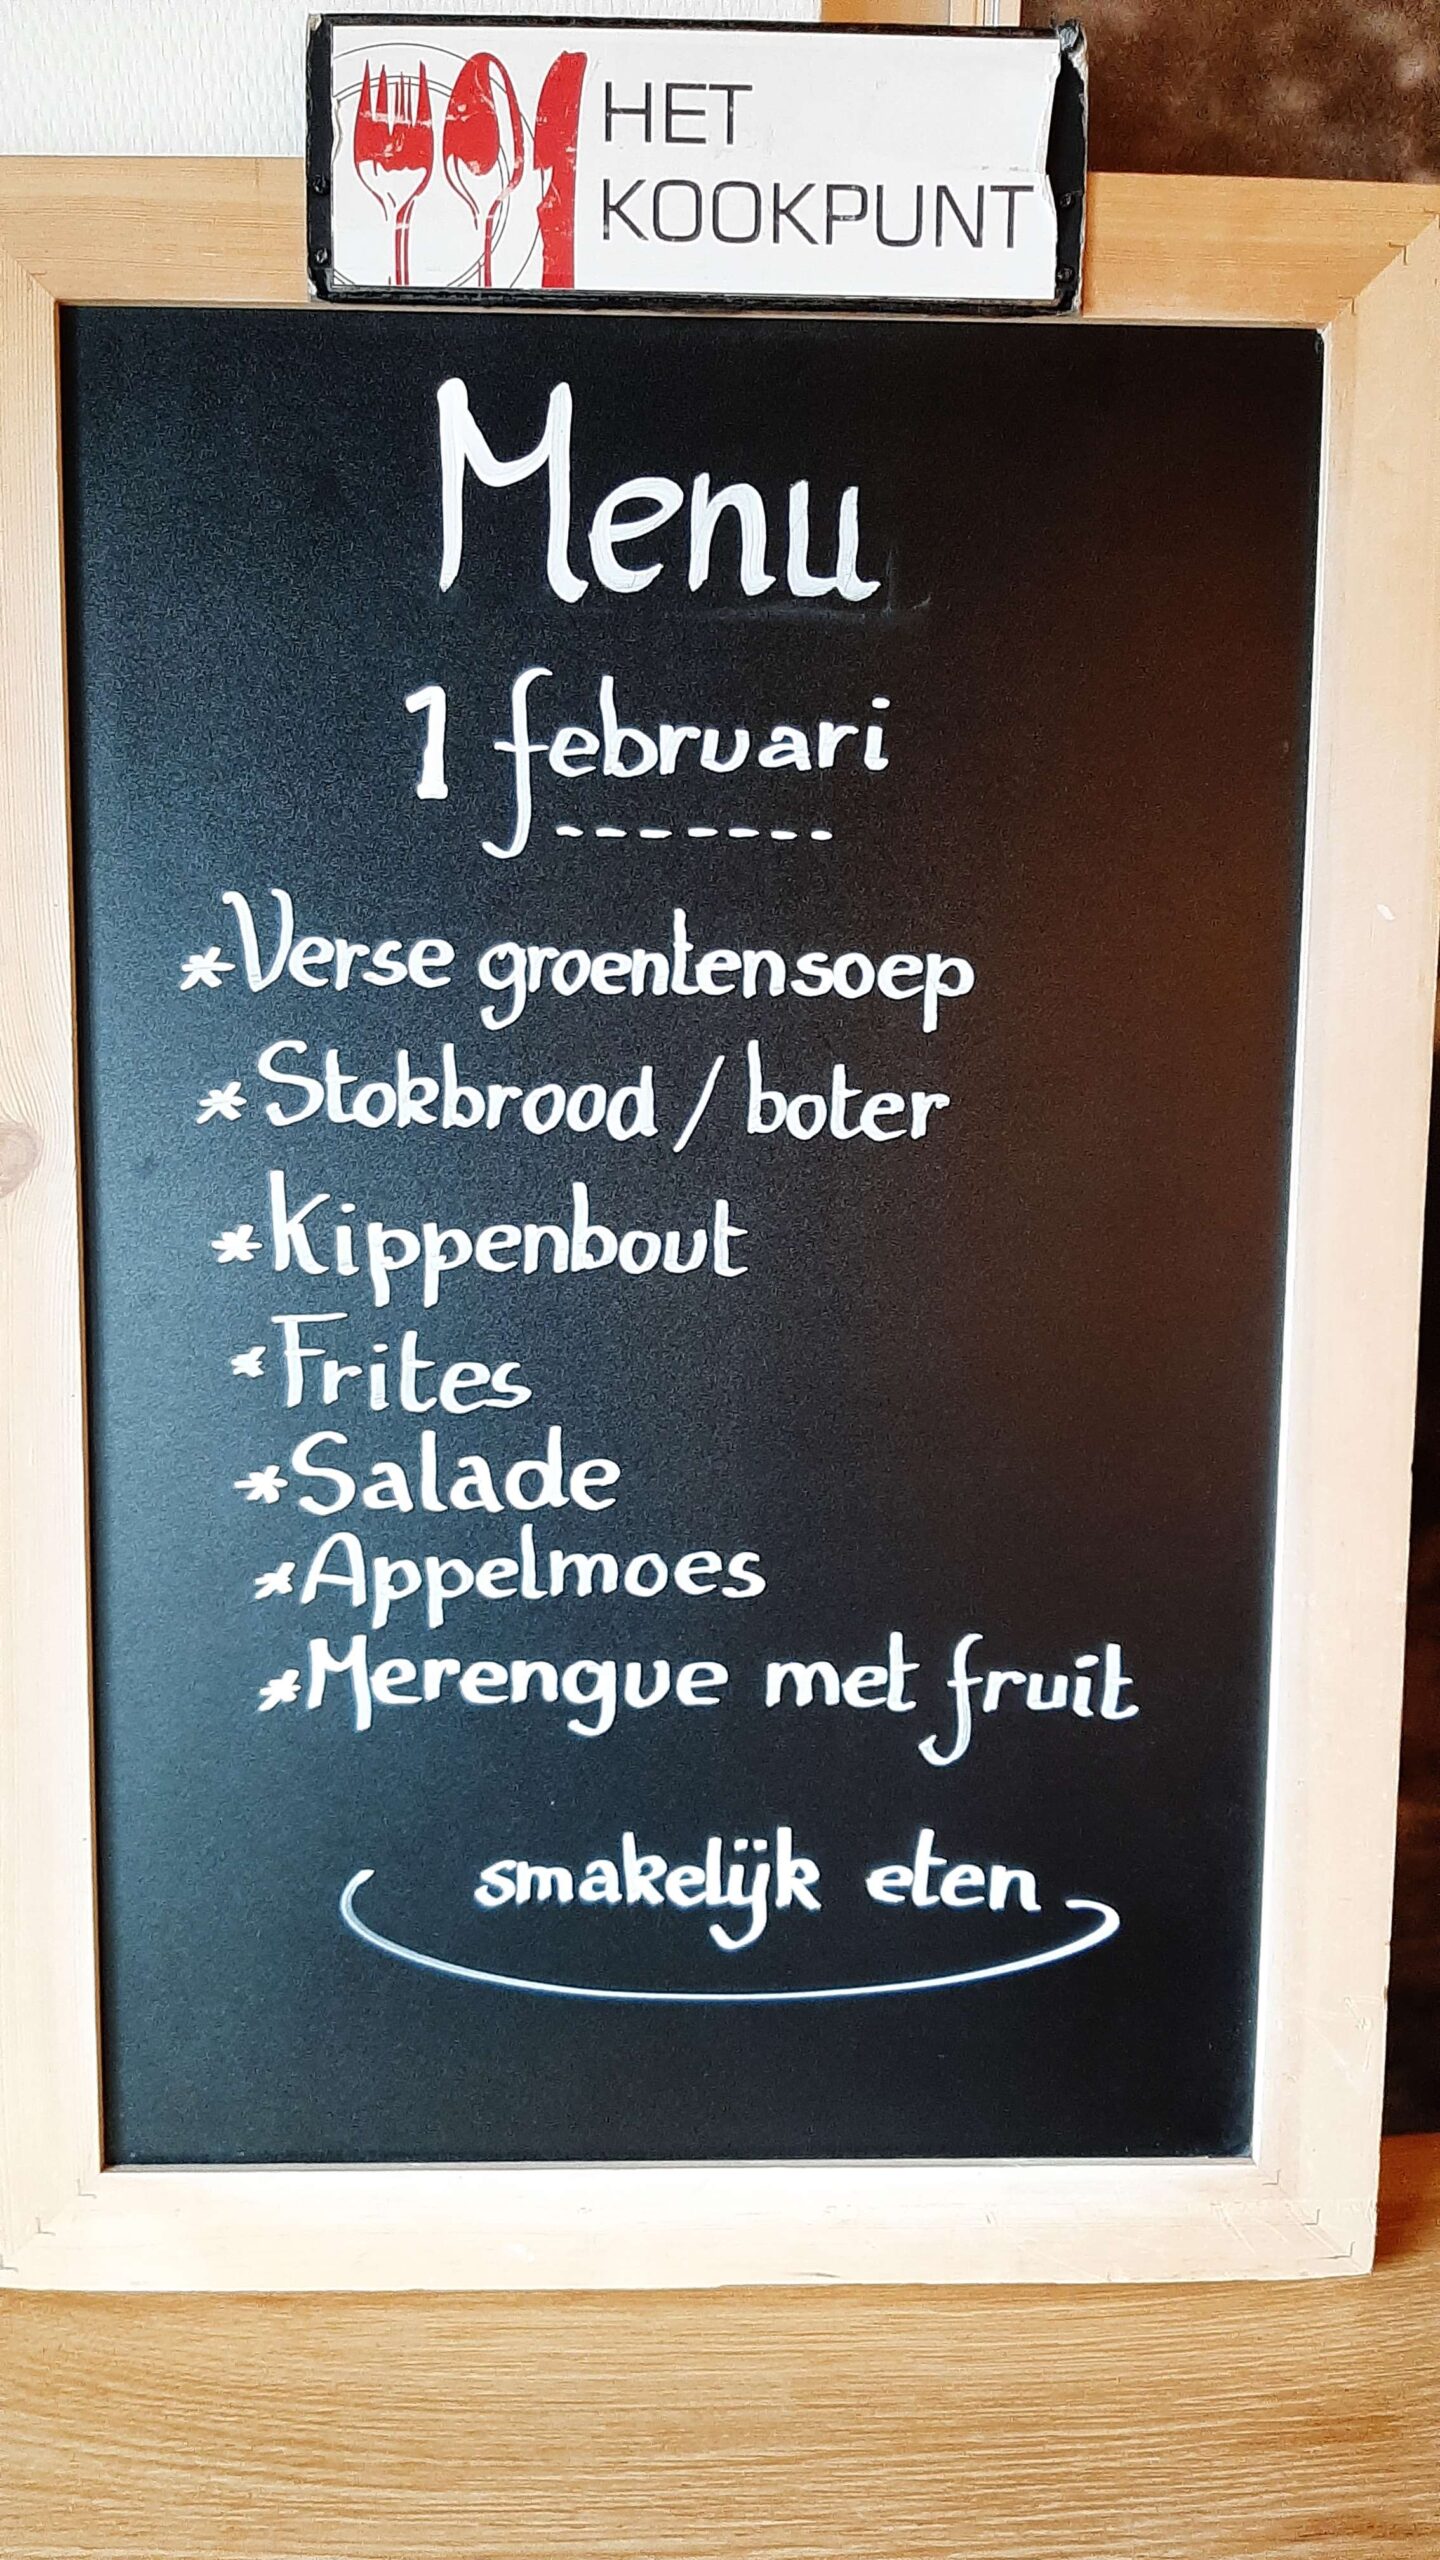 HET
KOOKPUNT
Menu
1 februari
-------
*Verse groentensoep
*Stokbrood / boter
*Kippenbout
*Frites
*Salade
*Appelmoes
*Merengue met fruit
smakelijk eten